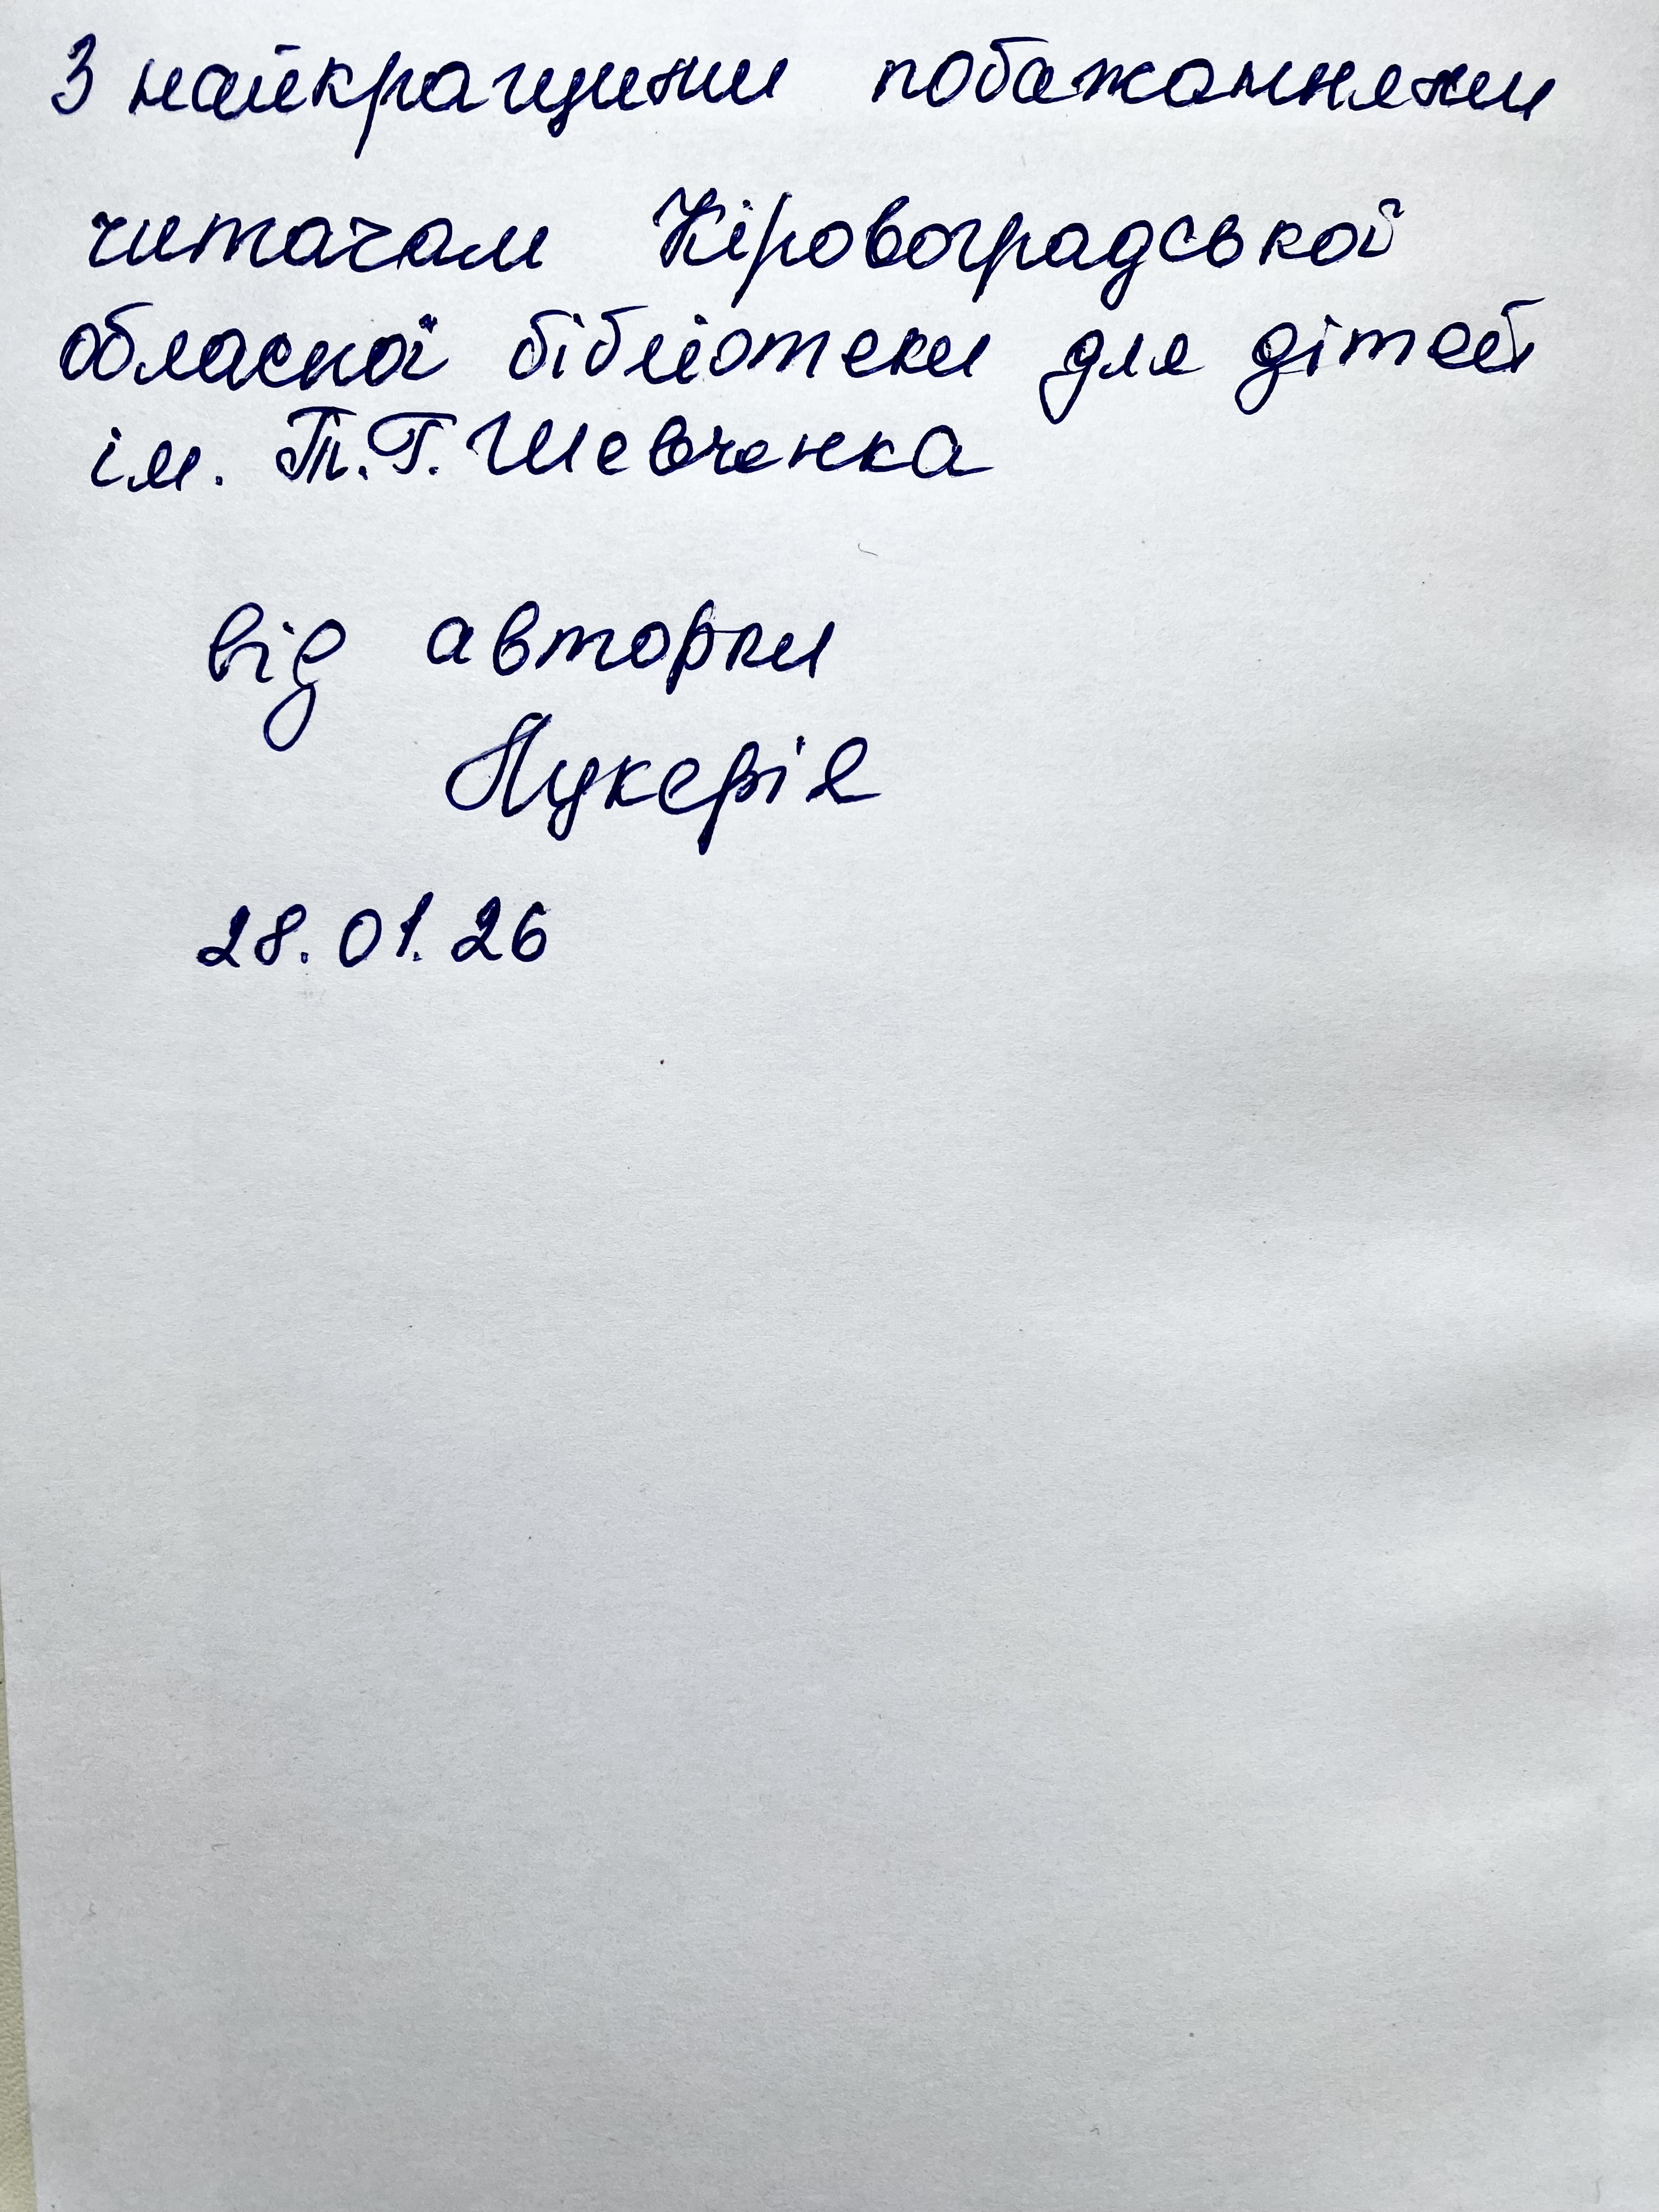 З найкращими побажаннями
читачам Кіровоградської
обласної бібліотеки для дітей
ім. Т.Г. Шевченка
від авторки
Лукерія
28.01.26